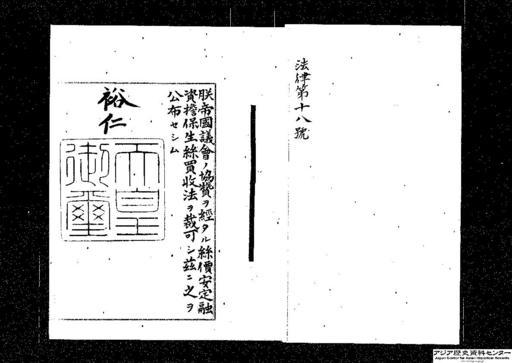 法律第十八號
朕帝國議會ノ協贊ヲ經タル絲價安定融
資擔保生絲買收法ヲ裁可シ茲ニ之ヲ
公布セシム
裕仁
天皇
御璽
アジア歴史資料センター
Japan Center for Asian Historical Records